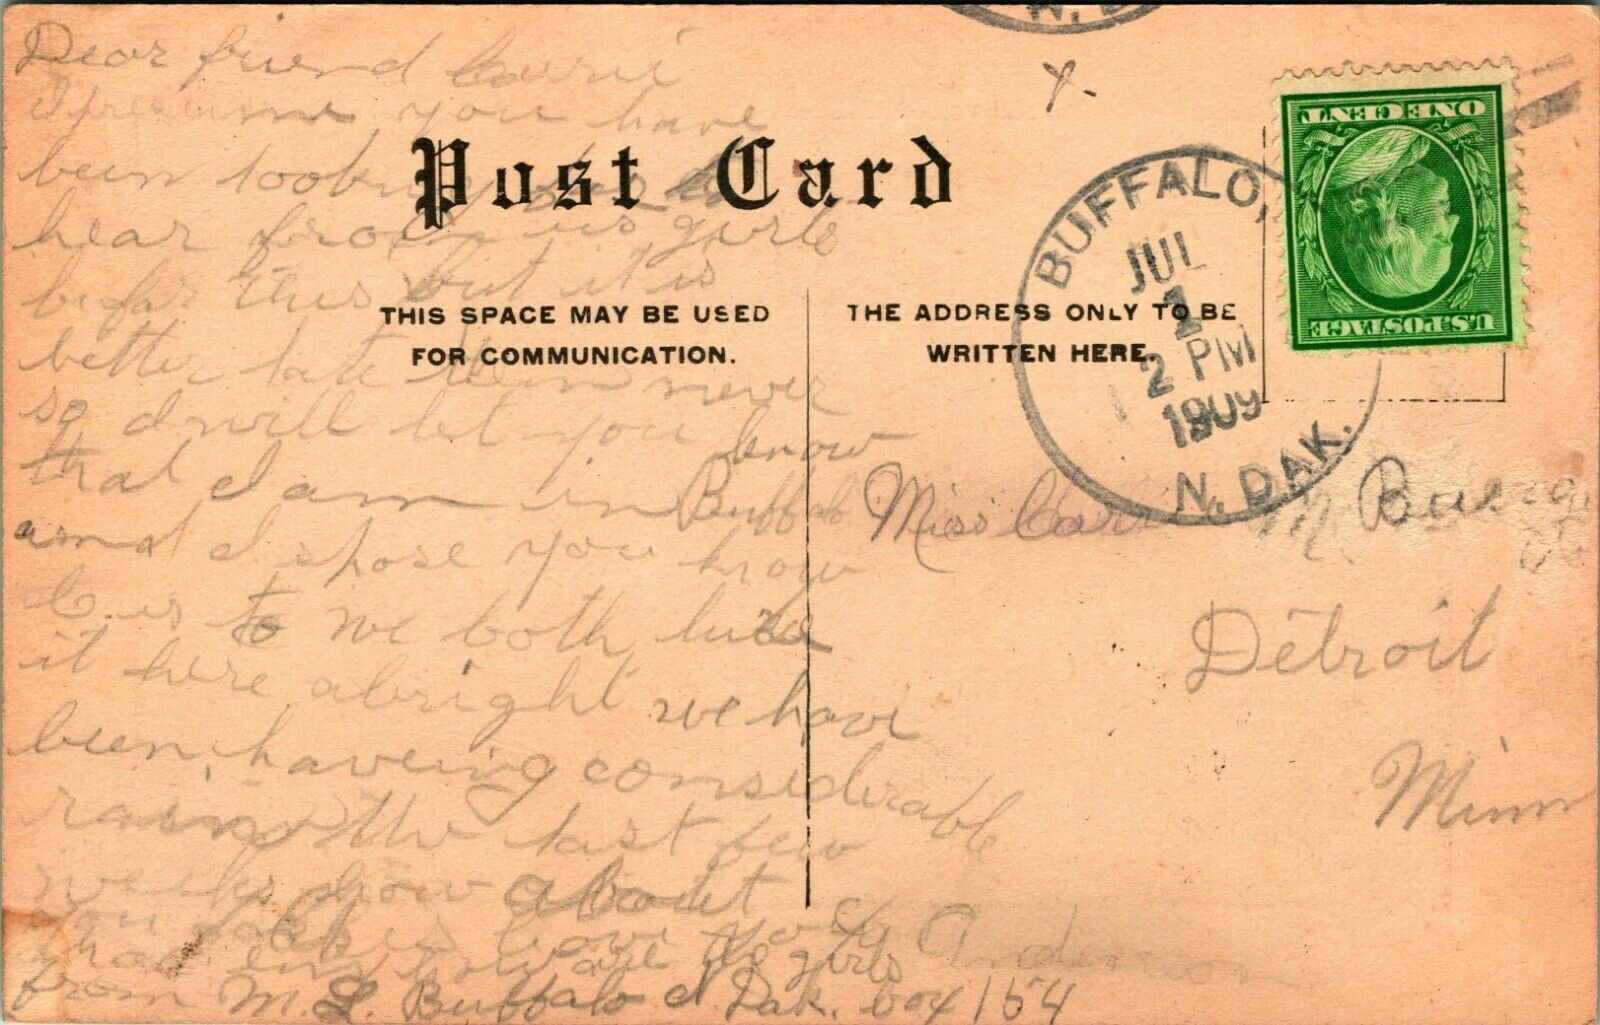 Dear friend Carrie
I presume you have
been looking to
hear from us girls
befor this but it is
better late then never
so I will let you know
that I am in Buffalo
and I spose you know
C. is to we both like
it here alright we have
been haveing considerable
raine the last few
weeks how about
you
girls
from M. L. Buffalo N. Dak. box 154
Post Card
THIS SPACE MAY BE USED
FOR COMMUNICATION.
THE ADDRESS ONLY TO BE
WRITTEN HERE.
BUFFALO,
JUL
1
2 PM
1909
N. DAK.
ONE CENT
U.S. POSTAGE
Miss Carrie
Detroit
Minn
c/o Anderson